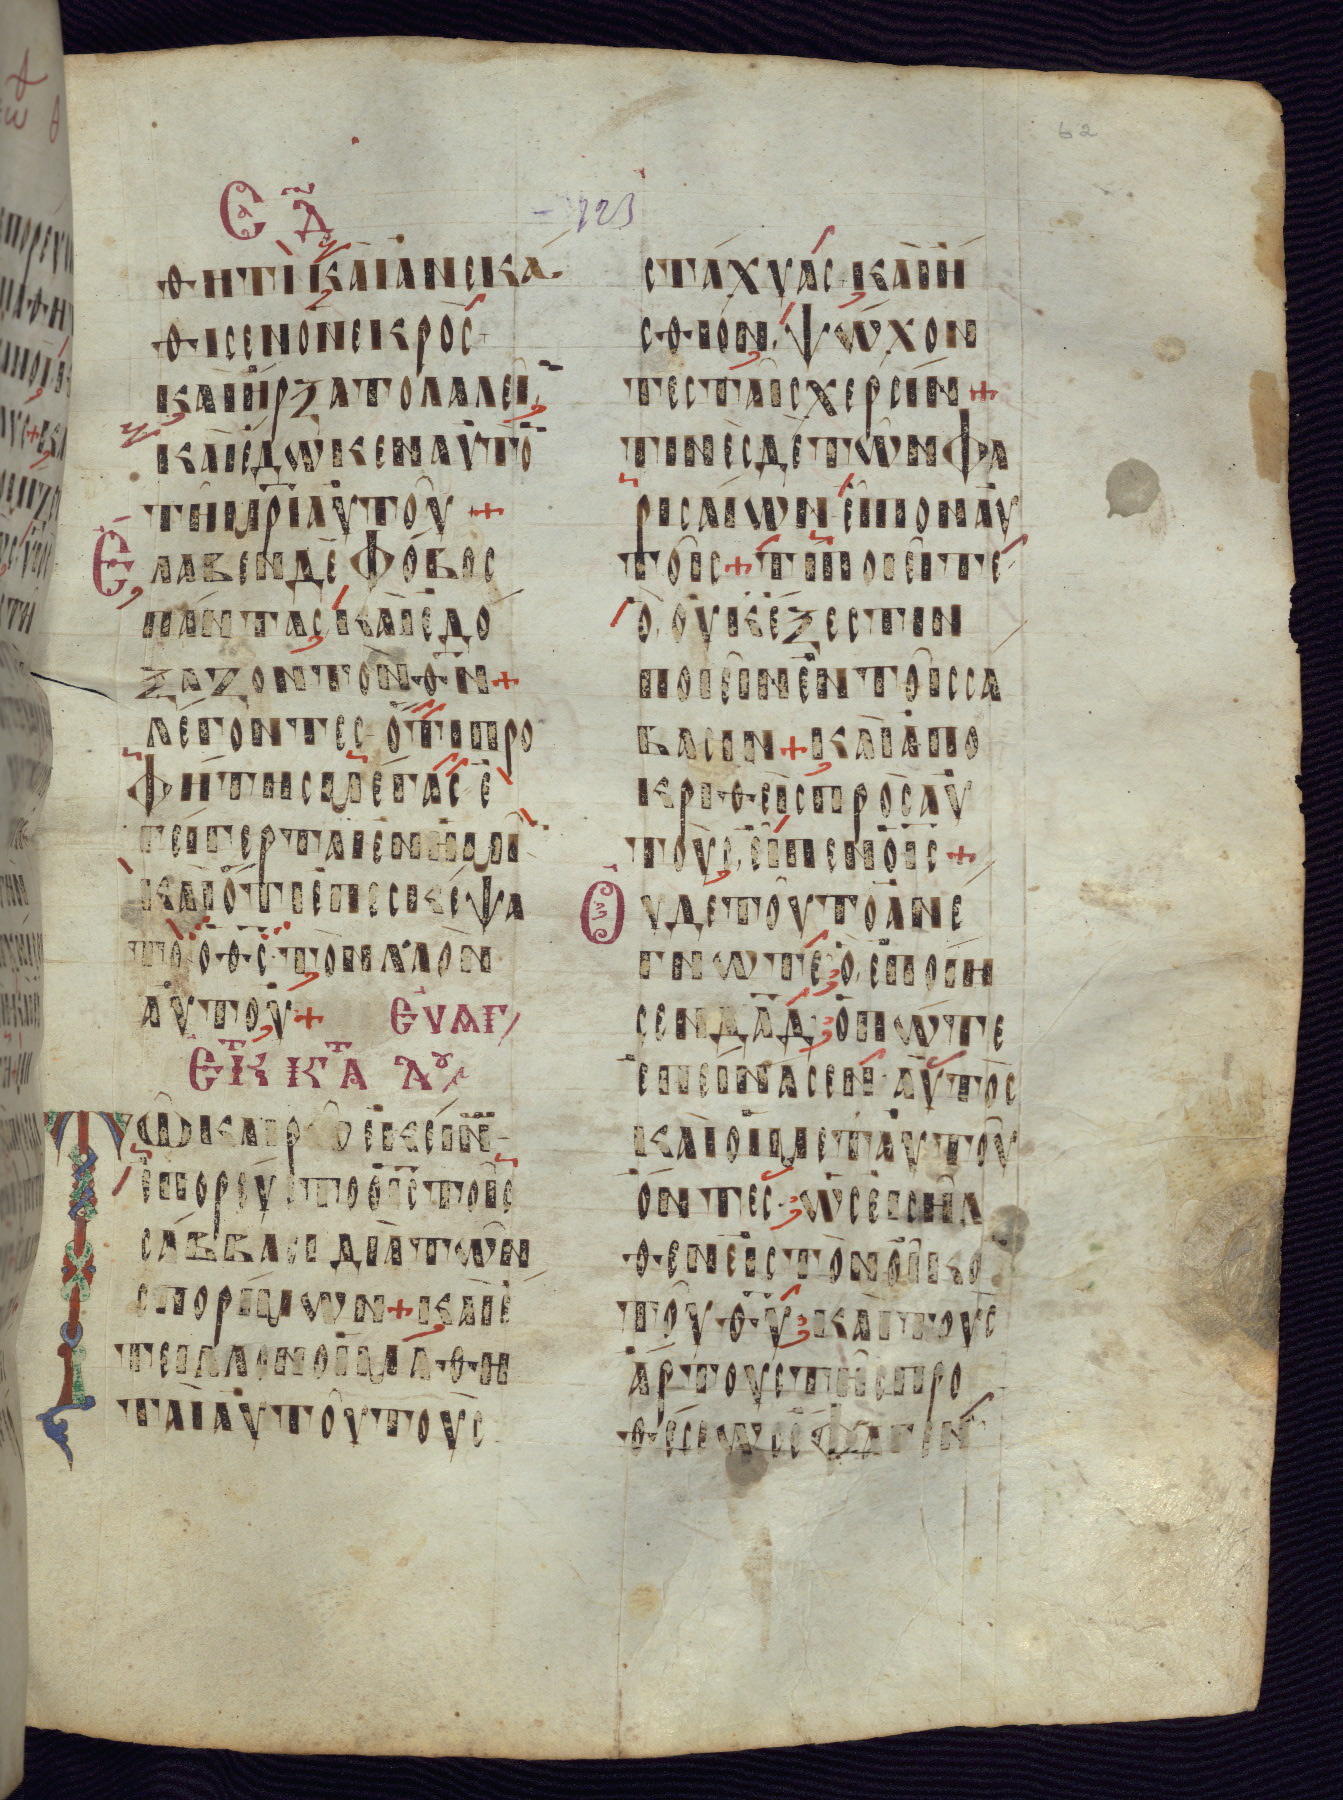 62
Ϲ Δ
123
ΘΗΤΙ ΚΑΙ ΑΝΕΚΑ
ΘΙϹΕΝ Ο ΝΕΚΡΟϹ
ΚΑΙ ΗΡΞΑΤΟ ΛΑΛΕΙ
ΚΑΙ ΕΔΩΚΕΝ ΑΥΤΟ
ΤΗ ΜΡΙ ΑΥΤΟΥ +
ΕΛΑΒΕΝ ΔΕ ΦΟΒΟϹ
ΠΑΝΤΑϹ ΚΑΙ ΕΔΟ
ΞΑΖΟΝ ΤΟΝ ΘΝ +
ΛΕΓΟΝΤΕϹ ΟΤΙ ΠΡΟ
ΦΗΤΗϹ ΜΕΓΑϹ Ε
ΓΕΙΓΕΡΤΑΙ ΕΝ ΗΜΙ
ΚΑΙ ΟΤΙ ΕΠΕϹΚΕΨΑ
ΤΟ Ο ΘϹ ΤΟΝ ΛΑΟΝ
ΑΥΤΟΥ + ΕΥΑΓ
ΕΚ Κ ΤΑ ΛΟΥ
ΤΩ ΚΑΙΡΩ ΕΚΕΙΝ
ΕΠΟΡΕΥΕΤΟ Ο ΙϹ ΤΟΙϹ
ϹΑΒΒΑϹΙ ΔΙΑ ΤΩΝ
ϹΠΟΡΙΜΩΝ + ΚΑΙ Ε
ΤΕΙΛΛΟΝ ΟΙ ΜΑΘΗ
ΤΑΙ ΑΥΤΟΥ ΤΟΥϹ
ϹΤΑΧΥΑϹ ΚΑΙ Η
ϹΘΙΟΝ ΨΩΧΟΝ
ΤΕϹ ΤΑΙϹ ΧΕΡϹΙΝ +
ΤΙΝΕϹ ΔΕ ΤΩΝ ΦΑ
ΡΙϹΑΙΩΝ ΕΙΠΟΝ ΑΥ
ΤΟΙϹ + ΤΙ ΠΟΙΕΙΤΕ
Ο ΟΥΚ ΕΞΕϹΤΙΝ
ΠΟΙΕΙΝ ΕΝ ΤΟΙϹ ϹΑ
ΒΑϹΙΝ + ΚΑΙ ΑΠΟ
ΚΡΙΘΕΙϹ ΠΡΟϹ ΑΥ
ΤΟΥϹ ΕΙΠΕΝ Ο ΙϹ +
ΟΥΔΕ ΤΟΥΤΟ ΑΝΕ
ΓΝΩΤΕ Ο ΕΠΟΙΗ
ϹΕΝ ΔΑΔ ΟΠΩΤΕ
ΕΠΕΙΝΑϹΕΝ ΑΥΤΟϹ
ΚΑΙ ΟΙ ΜΕΤ ΑΥΤΟΥ
ΟΝΤΕϹ ΩϹ ΕΙϹΗΛ
ΘΕΝ ΕΙϹ ΤΟΝ ΟΙΚΟ
ΤΟΥ ΘΥ ΚΑΙ ΤΟΥϹ
ΑΡΤΟΥϹ ΤΗϹ ΠΡΟ
ΘΕϹΕΩϹ ΕΦΑΓΕΝ